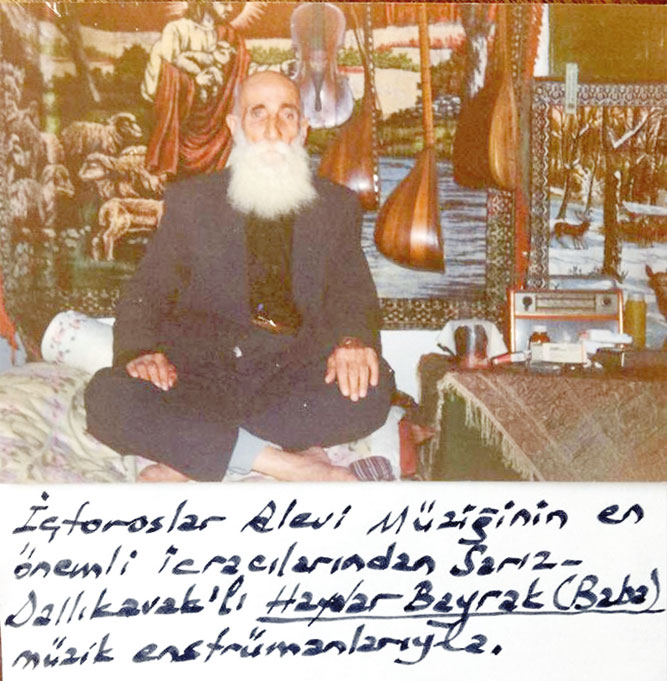 İçtoroslar Alevi Müziğinin en
önemli icracılarından Sarız-
Dallıkavak'lı Haydar Bayrak (Baba)
müzik enstrümanlarıyla.